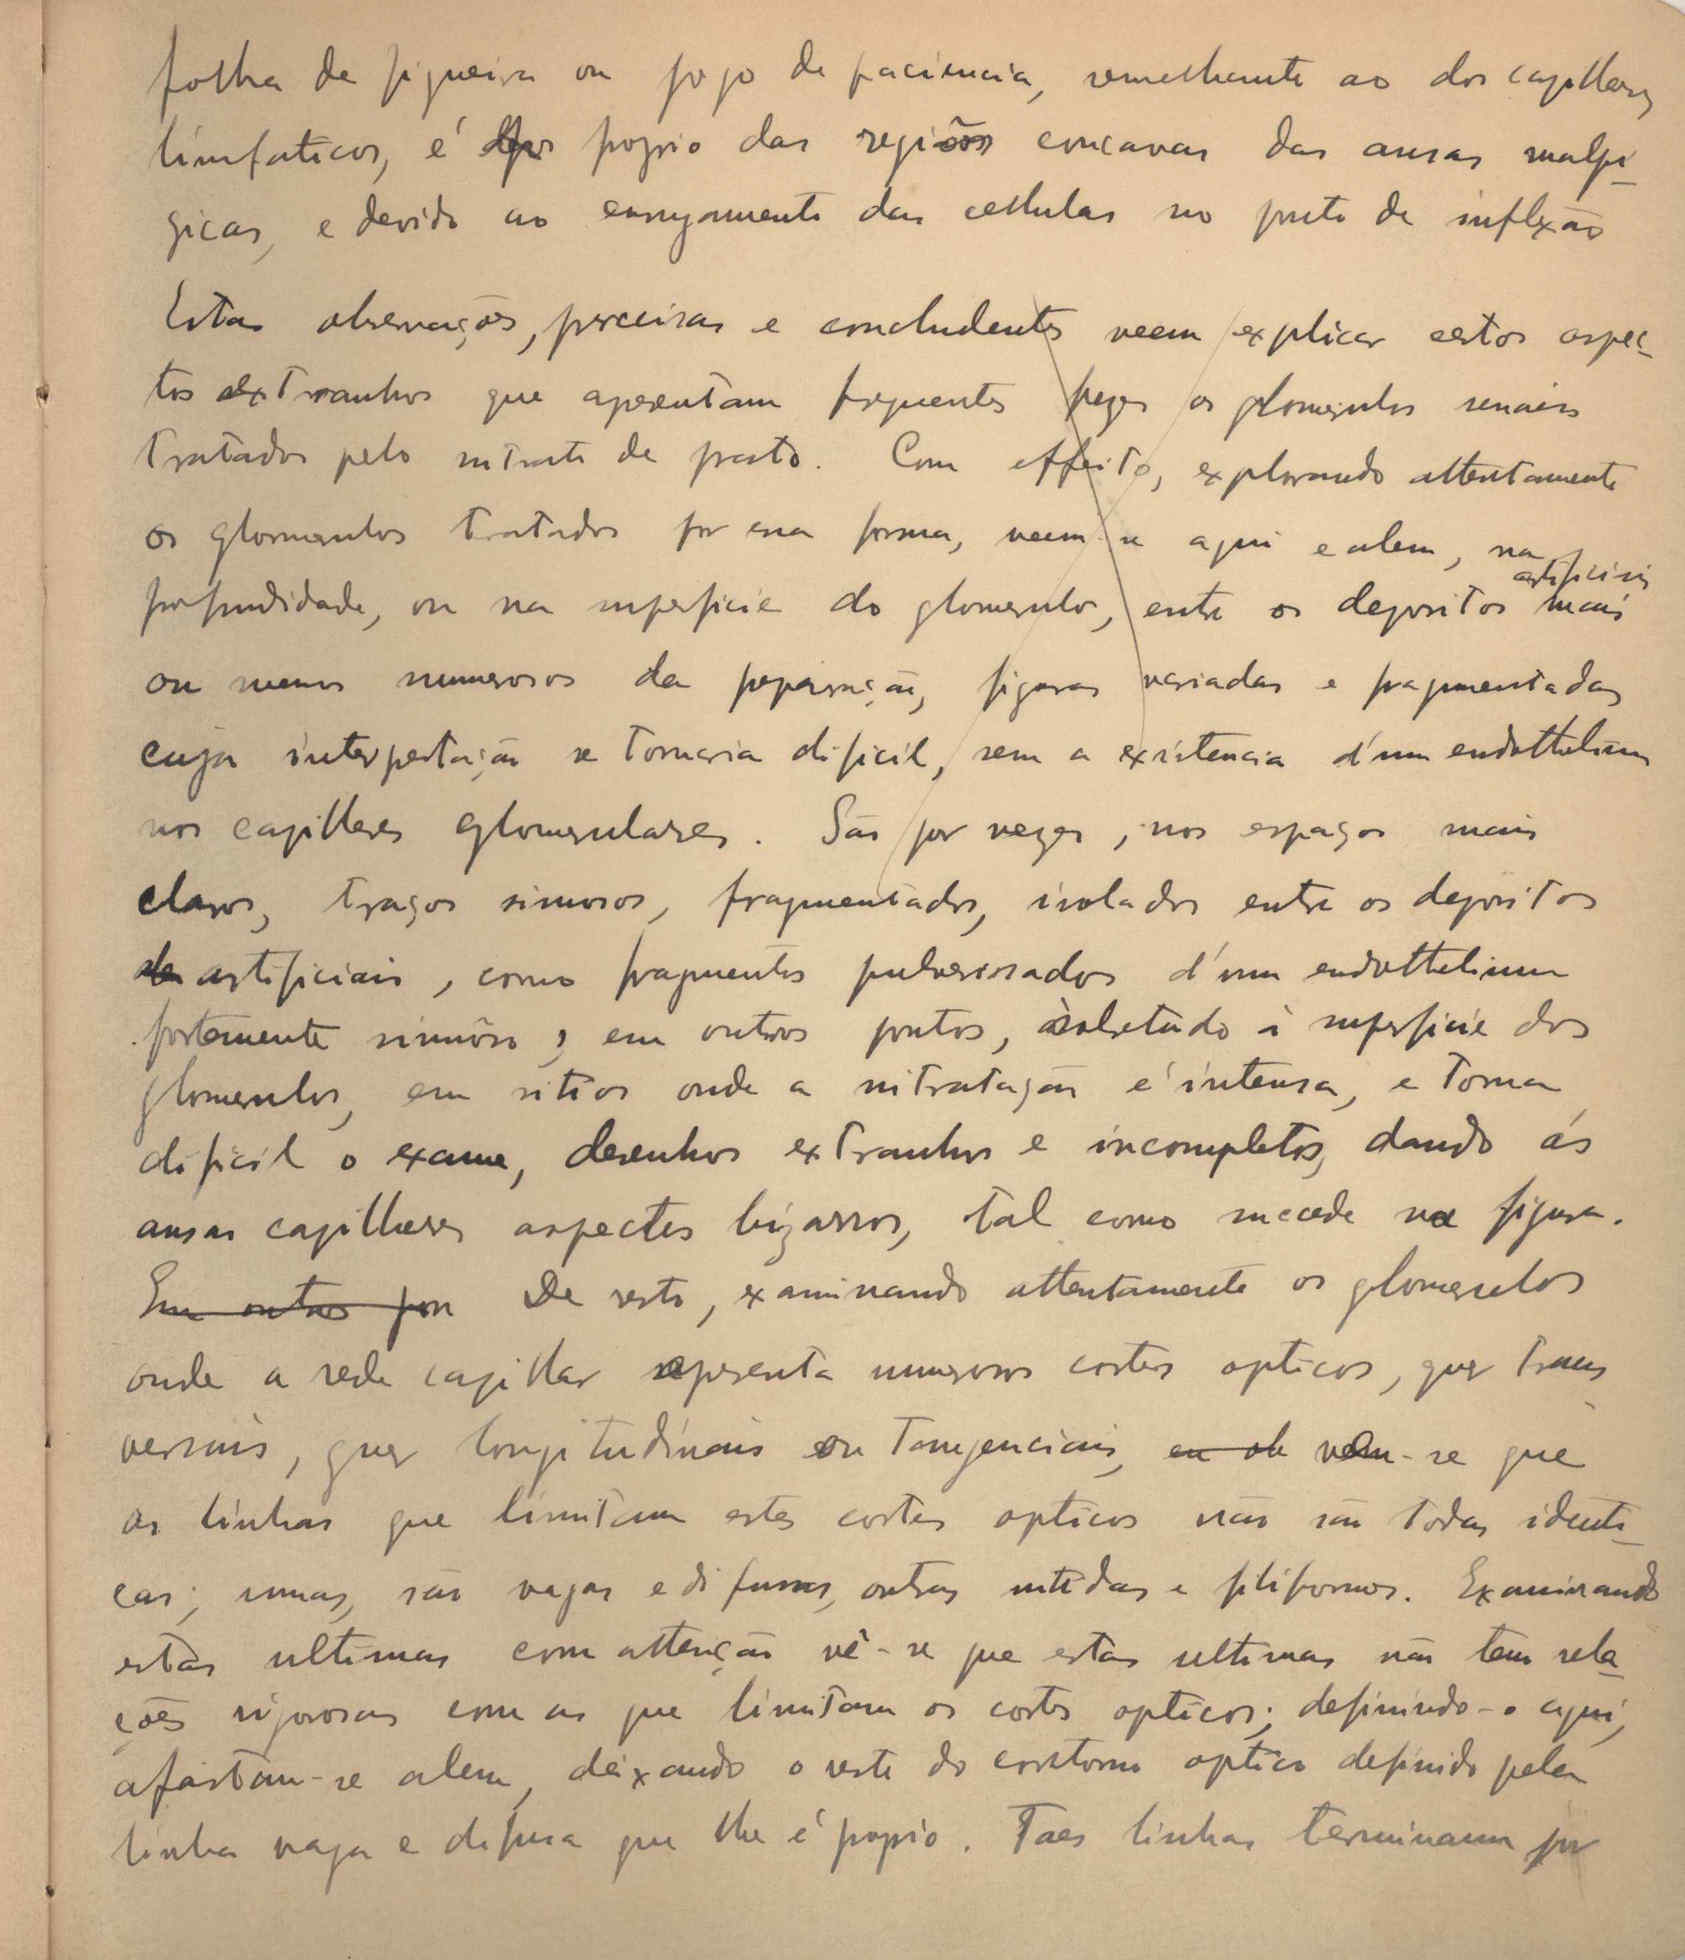 folha de figueira ou jogo de paciencia, semelhante ao dos capillares
linfaticos, é proprio das regiões concavas das ansas malpi-
gicas, e devido ao das cellulas no ponto de inflexão
Estas observações, precisas e concludentes veem explicar certos aspec-
tos extranhos que apresentam frequentes vezes os glomerulos renaes
tratados pelo nitrato de prata. Com effeito, explorando attentamente
os glomerulos tratados por essa forma, veem-se aqui e alem, na
profundidade, ou na superficie do glomerulo, entre os depositos artificiais mais
ou menos numerosos da preparação, figuras variadas e fragmentadas
cuja interpretação se tornaria dificil, sem a existencia d'um endothelium
nos capillares glomerulares. São por vezes, nos espaços mais
claros, traços sinuosos, fragmentados, isolados entre os depositos
de artificiais, como fragmentos pulverisados d'um endothelium
fortemente sinuôso; em outros pontos, sobretudo á superficie dos
glomerulos, em sitios onde a nitratação é intensa, e torna
dificil o exame, desenhos extranhos e incompletos, dando ás
ansas capillares aspectos bizarros, tal como succede na figura.
Em outros pon De resto, examinando attentamente os glomerulos
onde a rede capillar apresenta numerosos cortes opticos, quer trans
versais, quer longitudinais ou tangenciais, vêm-se que
as linhas que limitam estes cortes opticos não são todas identi-
cas; umas, são vagas e difusas, outras nitidas e filiformes. Examinando
estas ultimas com attenção vê-se que estas ultimas não tem rela-
ções rigorosas com as que limitam os cortes opticos; definindo-o aqui,
afastam-se alem, deixando o resto do contorno optico definido pela
linha vaga e difusa que lhe é proprio. Taes linhas terminam por